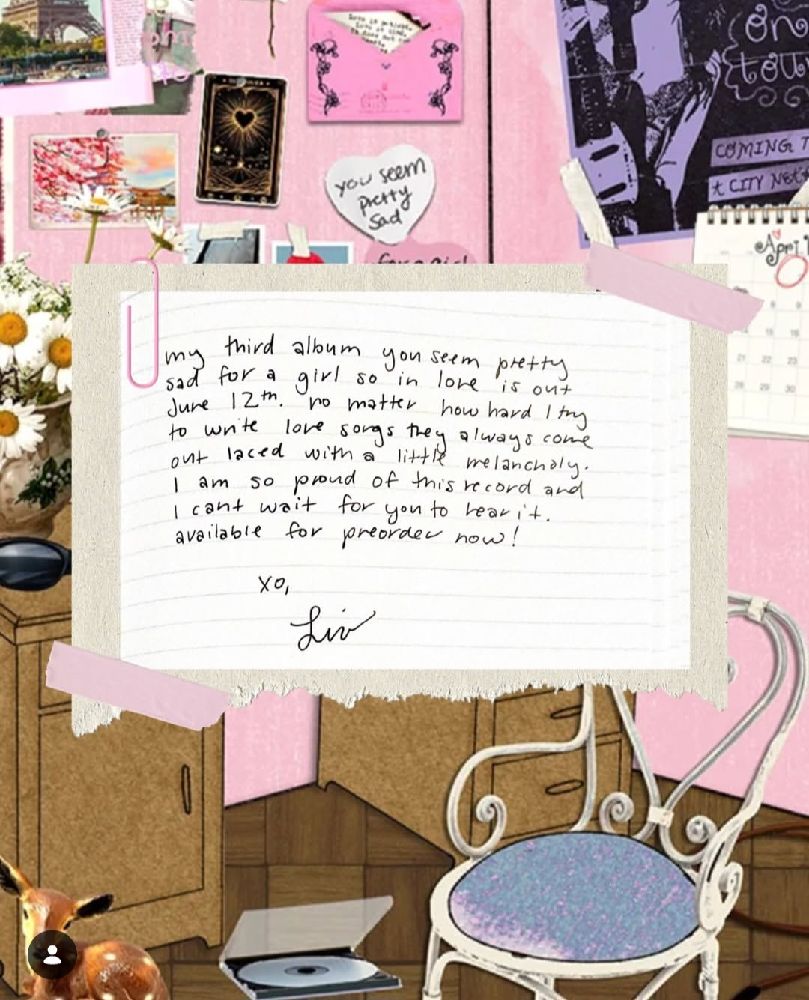 on
tour
COMING T
t CITY NEA
you seem
pretty
sad
for a girl
April
my third album you seem pretty
sad for a girl so in love is out
June 12th. no matter how hard I try
to write love songs they always come
out laced with a little melancholy.
I am so proud of this record and
I cant wait for you to hear it.
available for preorder now!
xo,
Liv